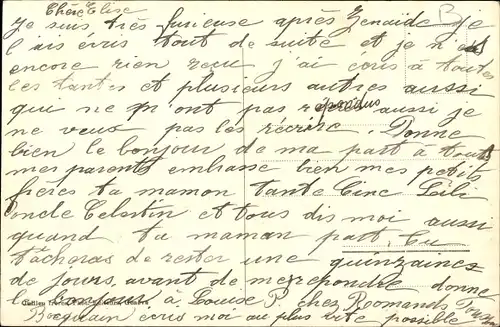 Chère Elise
Je suis très furieuse après Zenaide je
l ais ecris tout de suite et je n ai
encore rien recu j'ai ecris à toutes
les tantes et plusieurs autres aussi
que ne m'ont pas rependus aussi je
ne veus pas les récrire. Donne
bien le bonjour de ma part à tous
mes parents embrasse bien mes petits
frères ta maman tante Cine Lili
oncle Celestin et tous dis moi aussi
quand ta maman part. tu
tâcheras de rester une quinzaines
de jours, avant de me rependre donne
le bonjour à Louise P. chez Romands
Bocquain ecris moi au plus vite possible